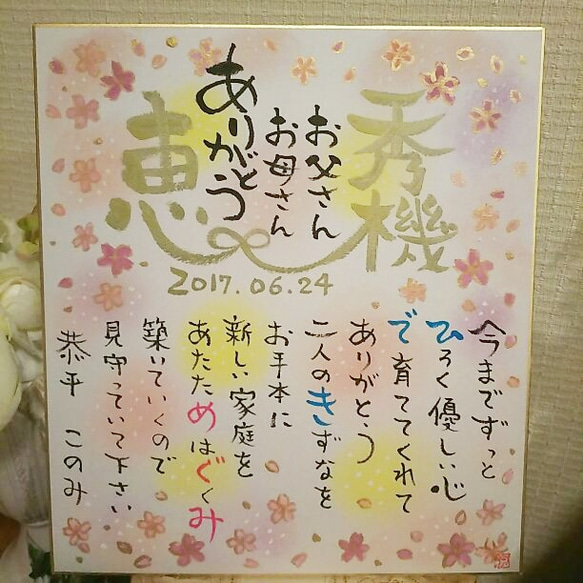 秀機
お父さん
お母さん
ありがとう
恵
2017.06.24
今までずっと
ひろく優しい心
で育ててくれて
ありがとう
二人のきずなを
お手本に
新しい家庭を
あたためはぐくみ
築いていくので
見守っていて下さい
恭平 このみ